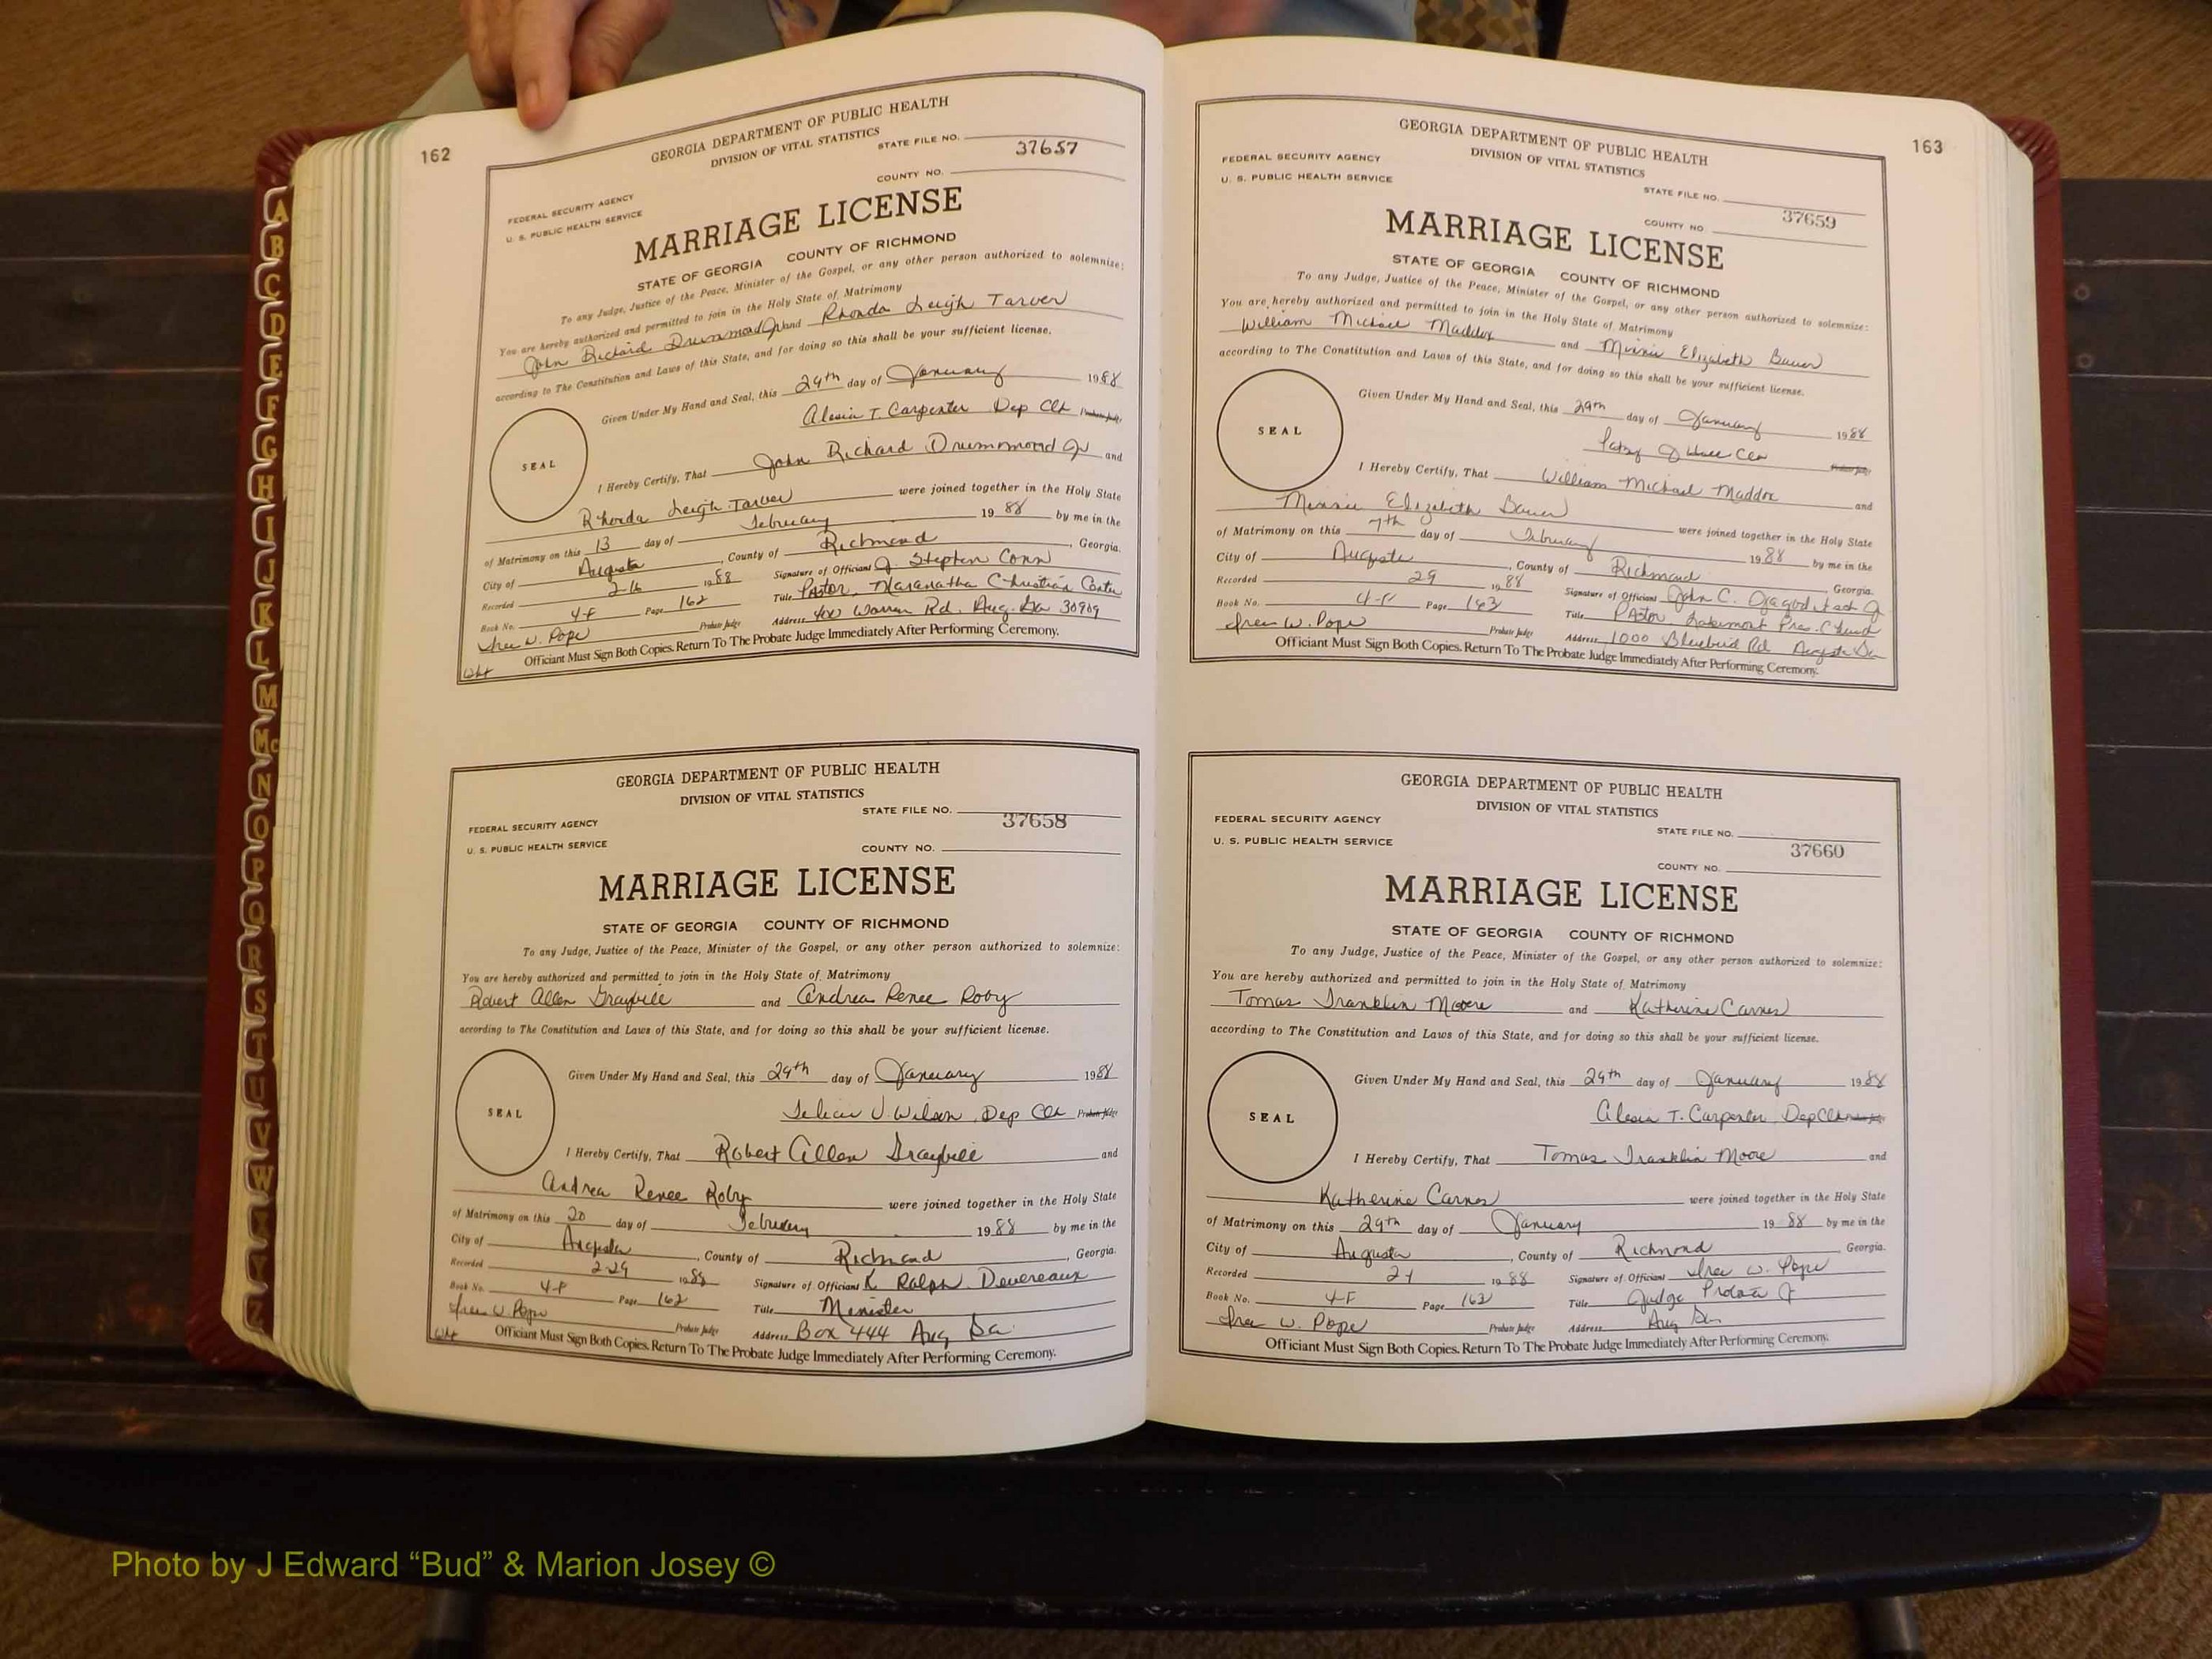 162
GEORGIA DEPARTMENT OF PUBLIC HEALTH
DIVISION OF VITAL STATISTICS
STATE FILE NO. 37657
COUNTY NO.
FEDERAL SECURITY AGENCY
U. S. PUBLIC HEALTH SERVICE
MARRIAGE LICENSE
STATE OF GEORGIA COUNTY OF RICHMOND
To any Judge, Justice of the Peace, Minister of the Gospel, or any other person authorized to solemnize:
You are hereby authorized and permitted to join in the Holy State of Matrimony
John Richard Drummond Jr and Rhonda Leigh Tarver
according to The Constitution and Laws of this State, and for doing so this shall be your sufficient license.
Given Under My Hand and Seal, this 29th day of January 1988
Alesia T. Carpenter Dep Clk Probate Judge
SEAL
I Hereby Certify, That John Richard Drummond Jr and
Rhonda Leigh Tarver were joined together in the Holy State
of Matrimony on this 13 day of February 1988 by me in the
City of Augusta, County of Richmond, Georgia.
Recorded 2-16 1988 Signature of Officiant J. Stephen Conn
Book No. 4-F Page 162 Title Pastor, Maranatha Christian Center
Address 400 Warren Rd. Aug. Ga 30909
W. Pope Probate Judge
Officiant Must Sign Both Copies. Return To The Probate Judge Immediately After Performing Ceremony.
GEORGIA DEPARTMENT OF PUBLIC HEALTH
DIVISION OF VITAL STATISTICS
STATE FILE NO. 37658
FEDERAL SECURITY AGENCY
U. S. PUBLIC HEALTH SERVICE
COUNTY NO.
MARRIAGE LICENSE
STATE OF GEORGIA COUNTY OF RICHMOND
To any Judge, Justice of the Peace, Minister of the Gospel, or any other person authorized to solemnize:
You are hereby authorized and permitted to join in the Holy State of Matrimony
Robert Allen Graybill and Andrea Renee Roby
according to The Constitution and Laws of this State, and for doing so this shall be your sufficient license.
Given Under My Hand and Seal, this 29th day of January 1988
Felicia J. Wilson Dep Clk Probate Judge
SEAL
I Hereby Certify, That Robert Allen Graybill and
Andrea Renee Roby were joined together in the Holy State
of Matrimony on this 20 day of February 1988 by me in the
City of Augusta, County of Richmond, Georgia.
Recorded 2-29 1988 Signature of Officiant K Ralph Devereaux
Book No. 4-F Page 162 Title Minister
W. Pope Probate Judge Address Box 444 Aug Ga.
Officiant Must Sign Both Copies. Return To The Probate Judge Immediately After Performing Ceremony.
163
GEORGIA DEPARTMENT OF PUBLIC HEALTH
DIVISION OF VITAL STATISTICS
FEDERAL SECURITY AGENCY
U. S. PUBLIC HEALTH SERVICE
STATE FILE NO. 37659
COUNTY NO
MARRIAGE LICENSE
STATE OF GEORGIA COUNTY OF RICHMOND
To any Judge, Justice of the Peace, Minister of the Gospel, or any other person authorized to solemnize:
You are hereby authorized and permitted to join in the Holy State of Matrimony
William Michael Maddox and Minnie Elizabeth Bauer
according to The Constitution and Laws of this State, and for doing so this shall be your sufficient license.
Given Under My Hand and Seal, this 29th day of January 1988
Patsy Probate Judge
SEAL
I Hereby Certify, That William Michael Maddox and
Minnie Elizabeth Bauer were joined together in the Holy State
of Matrimony on this 7th day of February 1988 by me in the
City of Augusta, County of Richmond Georgia.
Recorded 29 1988 Signature of Officiant John C.
Book No. 4-F Page 163 Title Pastor, Lakemont Pres. Church
W. Pope Probate Judge Address 1000 Bluebird Rd Augusta Ga
Officiant Must Sign Both Copies. Return To The Probate Judge Immediately After Performing Ceremony.
GEORGIA DEPARTMENT OF PUBLIC HEALTH
DIVISION OF VITAL STATISTICS
FEDERAL SECURITY AGENCY
STATE FILE NO. 37660
U. S. PUBLIC HEALTH SERVICE
COUNTY NO.
MARRIAGE LICENSE
STATE OF GEORGIA COUNTY OF RICHMOND
To any Judge, Justice of the Peace, Minister of the Gospel, or any other person authorized to solemnize:
You are hereby authorized and permitted to join in the Holy State of Matrimony
Tomas Franklin Moore and Katherine Carnes
according to The Constitution and Laws of this State, and for doing so this shall be your sufficient license.
Given Under My Hand and Seal, this 29th day of January 1988
Alesia T. Carpenter, Dep Clk
SEAL
I Hereby Certify, That Tomas Franklin Moore and
Katherine Carnes were joined together in the Holy State
of Matrimony on this 29th day of January 1988 by me in the
City of Augusta, County of Richmond Georgia.
Recorded 1988 Signature of Officiant W. Pope
Book No. 4-F Page 163 Title Judge
W. Pope Probate Judge Address Aug Ga
Officiant Must Sign Both Copies. Return To The Probate Judge Immediately After Performing Ceremony.
A
B
C
D
E
F
G
H
I
J
K
L
M
Mc
N
O
P
Q
R
S
T
U
V
W
X
Y
Z
Photo by J Edward “Bud” & Marion Josey ©